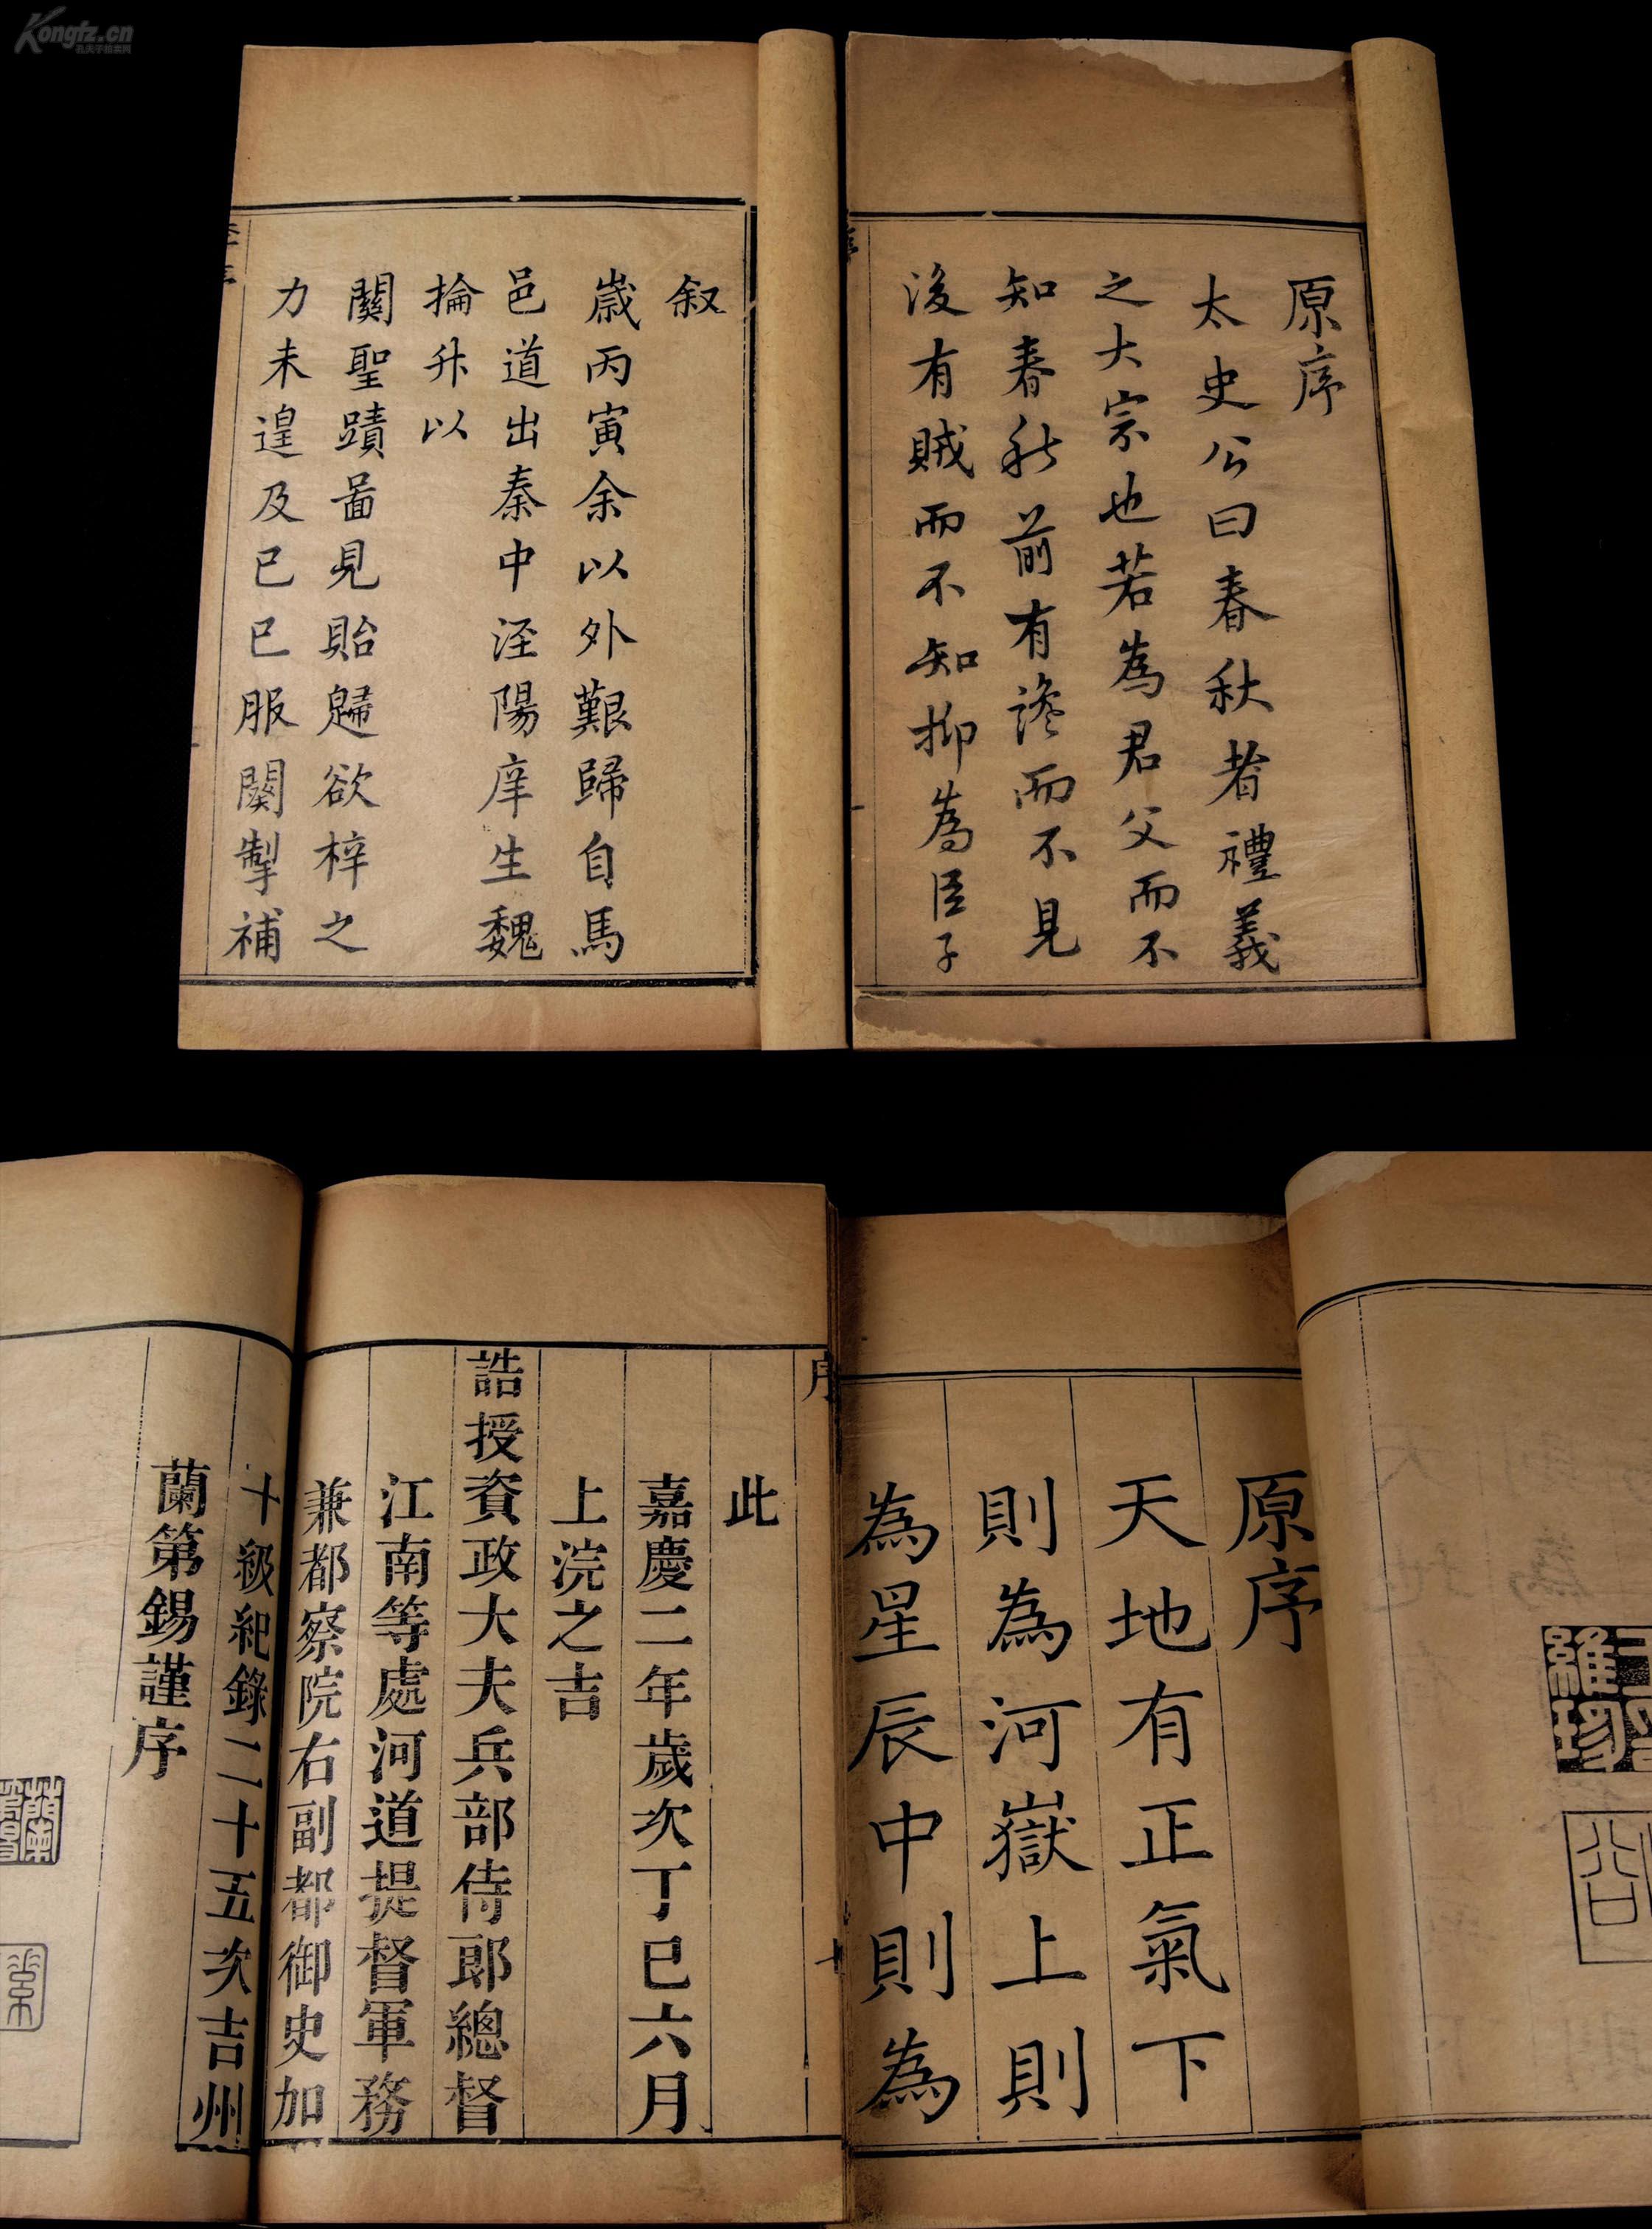 Kongfz.cn
孔夫子拍卖网
原序
太史公曰春秋者禮義
之大宗也若為君父而不
知春秋前有讒而不見
後有賊而不知抑為臣子
叙
歳丙寅余以外艱歸自馬
邑道出秦中涇陽庠生魏
掄升以
關聖蹟啚見貽歸欲梓之
力未遑及已巳服闋掣補
原序
天地有正氣下
則為河嶽上則
為星辰中則為
序
十
此
嘉慶二年歲次丁巳六月
上浣之吉
誥授資政大夫兵部侍郎總督
江南等處河道提督軍務
兼都察院右副都御史加
十級紀錄二十五次吉州
蘭第錫謹序